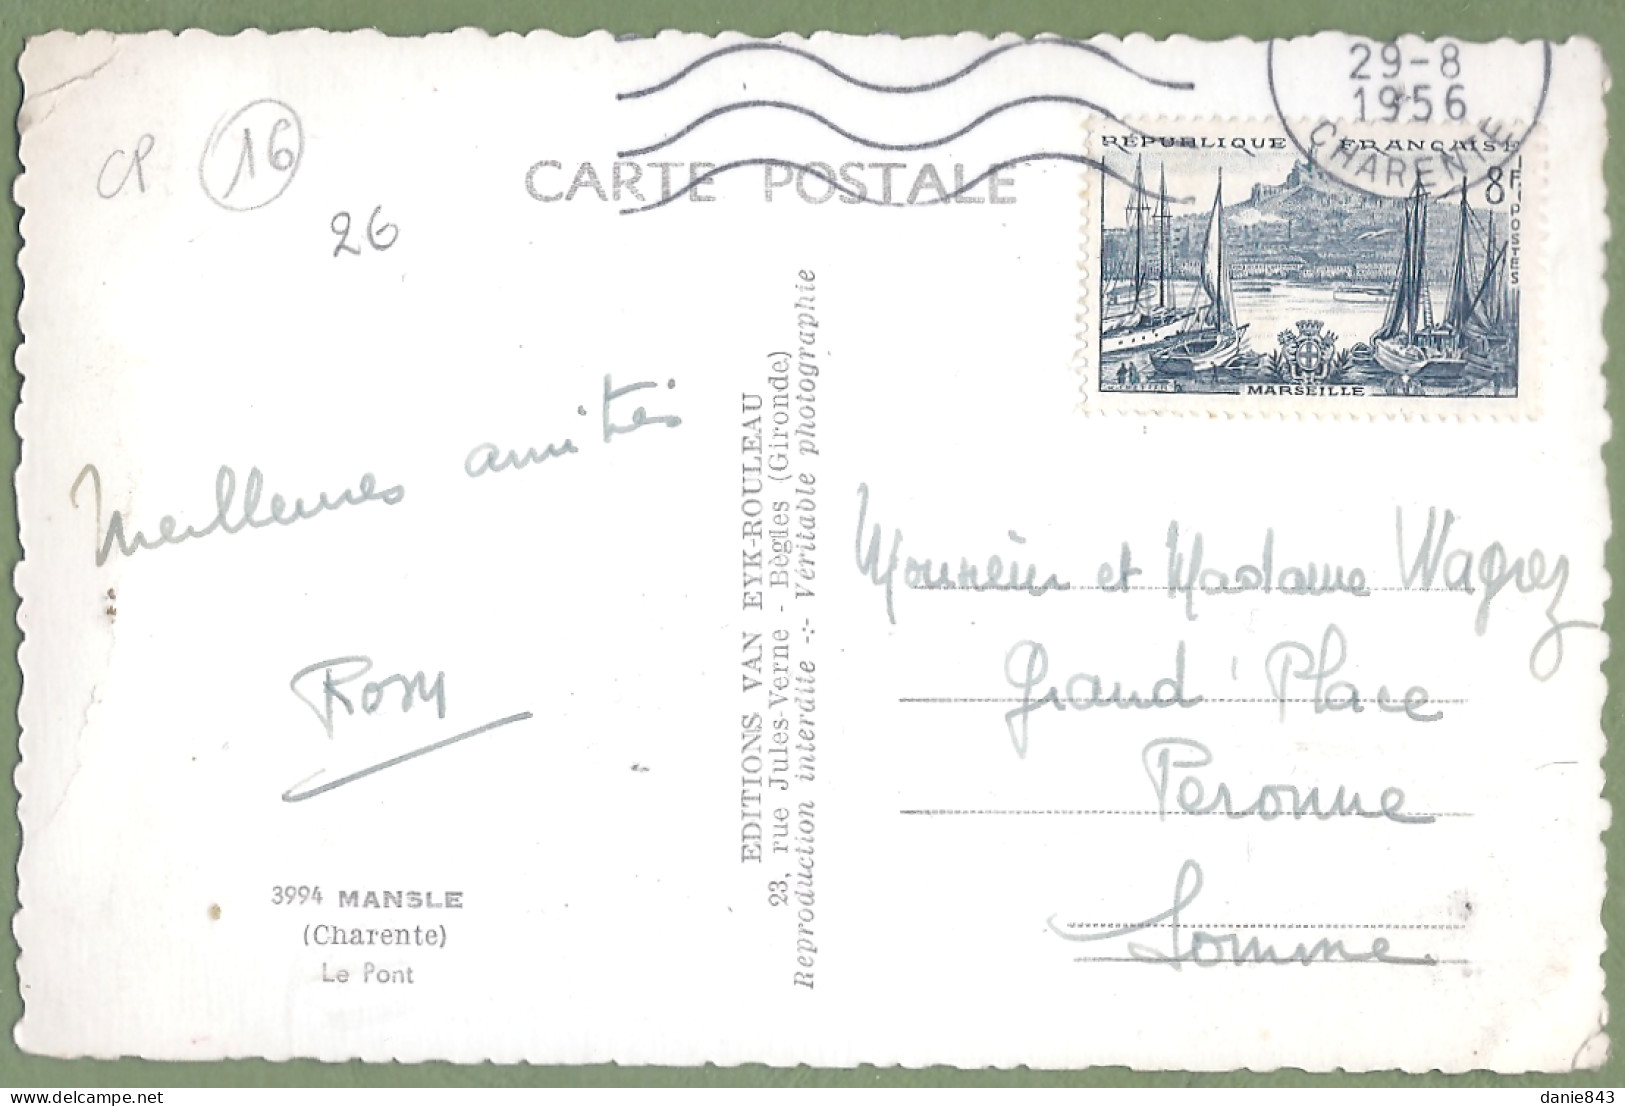 29-8
1956
CHARENTE
CP
16
26
CARTE POSTALE
RÉPUBLIQUE FRANÇAISE
8F
POSTES
MARSEILLE
Meilleures amitiés
Rosy
3994 MANSLE
(Charente)
Le Pont
EDITIONS VAN EYK-ROULEAU
23, rue Jules-Verne - Bègles (Gironde)
Reproduction interdite -:- Véritable photographie
Monsieur et Madame Wagrez
Grand' Place
Peronne
Somme
delcampe.net
danie843